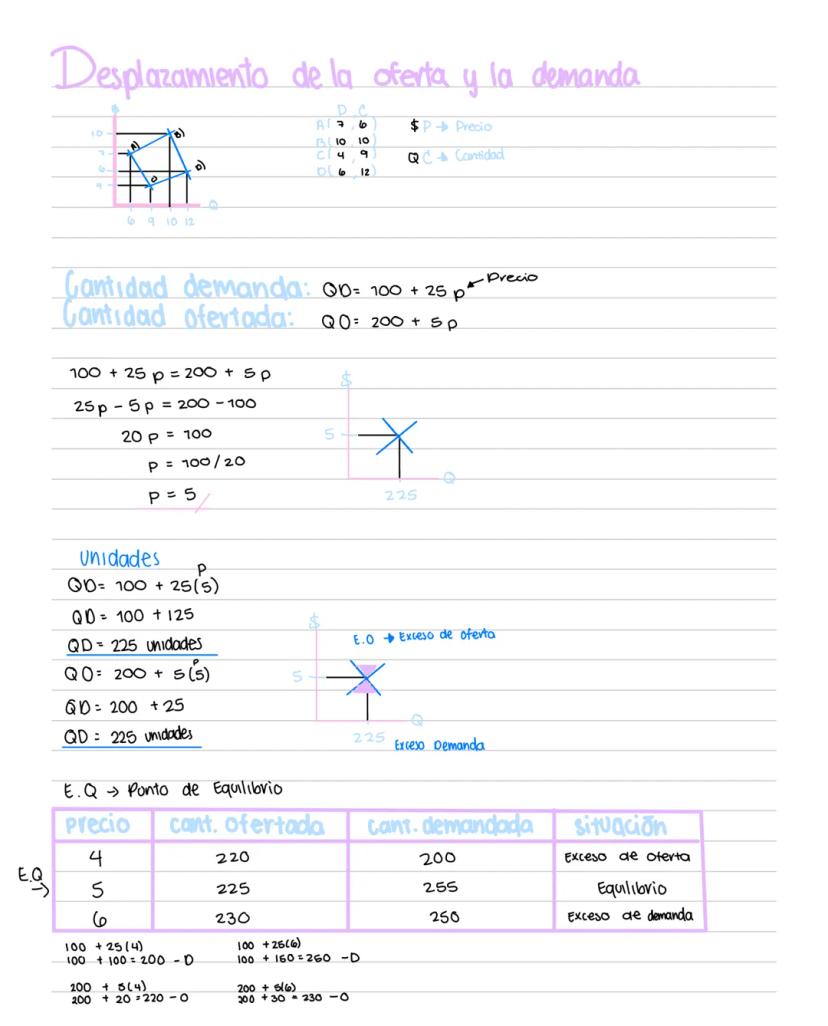 Desplazamiento de la oferta y la demanda
$
10
7
6
9
A)
B)
D)
6 9 10 12
Q
D C
A( 7 , 6 )
B( 10 10 )
C( 4 9 )
D( 6 12 )
$ P → Precio
Q C → Cantidad
Cantidad demanda: QD= 100 + 25 p ← Precio
Cantidad ofertada: QO: 200 + 5 p
100 + 25 p = 200 + 5 p
25p - 5p = 200 - 100
20 p = 100
p = 100/20
p = 5
$
5
225
Q
Unidades
p
QD= 100 + 25(5)
QD= 100 + 125
QD = 225 unidades
p
QO: 200 + 5(5)
QD= 200 + 25
QD = 225 unidades
$
E.O → Exceso de oferta
5
Q
225
Exceso Demanda
E.Q → Ponto de Equlibrio
precio cant. ofertada cant. demandada situación
4 220 200 Exceso de oferta
E.Q → 5 225 255 Equlibrio
6 230 250 Exceso de demanda
100 + 25(4)
100 + 100 = 200 - D
100 + 25(6)
100 + 150 = 250 - D
200 + 5(4)
200 + 20 = 220 - O
200 + 5(6)
200 + 30 = 230 - O